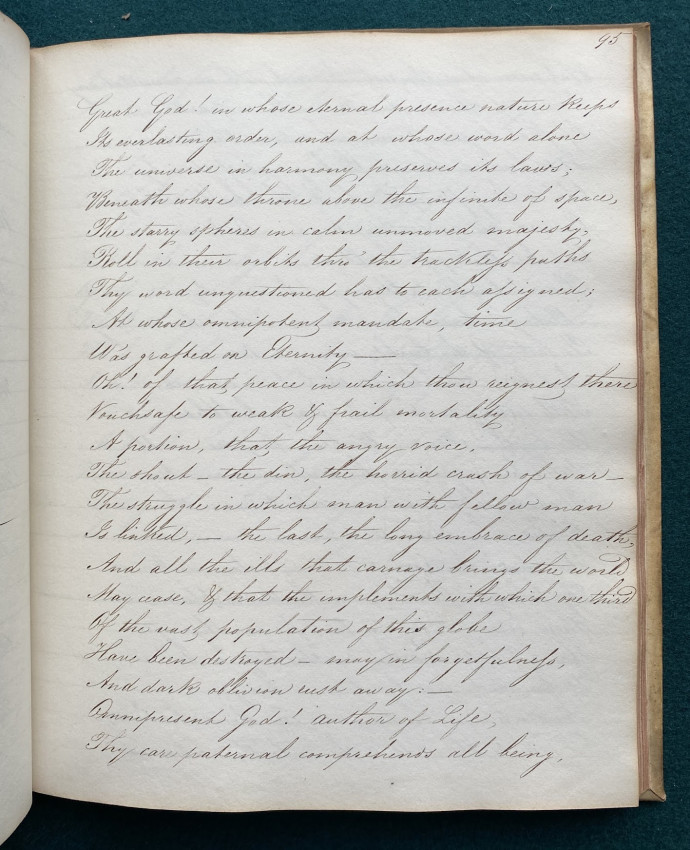 95
Great God! in whose eternal presence nature keeps
Its everlasting order, and at whose word alone
The universe in harmony preserves its laws;
Beneath whose throne above the infinite of space,
The starry spheres in calm unmoved majesty,
Roll in their orbits thro' the trackless paths
Thy word unquestioned has to each assigned;
At whose omnipotent mandate, time
Was grafted on Eternity —
Oh! of that peace in which thou reignest there
Vouchsafe to weak & frail mortality
A portion, that the angry voice,
The shout – the din, the horrid crash of war –
The struggle in which man with fellow man
Is linked, – the last, the long embrace of death,
And all the ills that carnage brings the world
May cease, & that the implements with which one third
Of the vast population of this globe
Have been destroyed – may in forgetfulness,
And dark oblivion rust away: –
Omnipresent God! author of Life,
Thy care paternal comprehends all being,